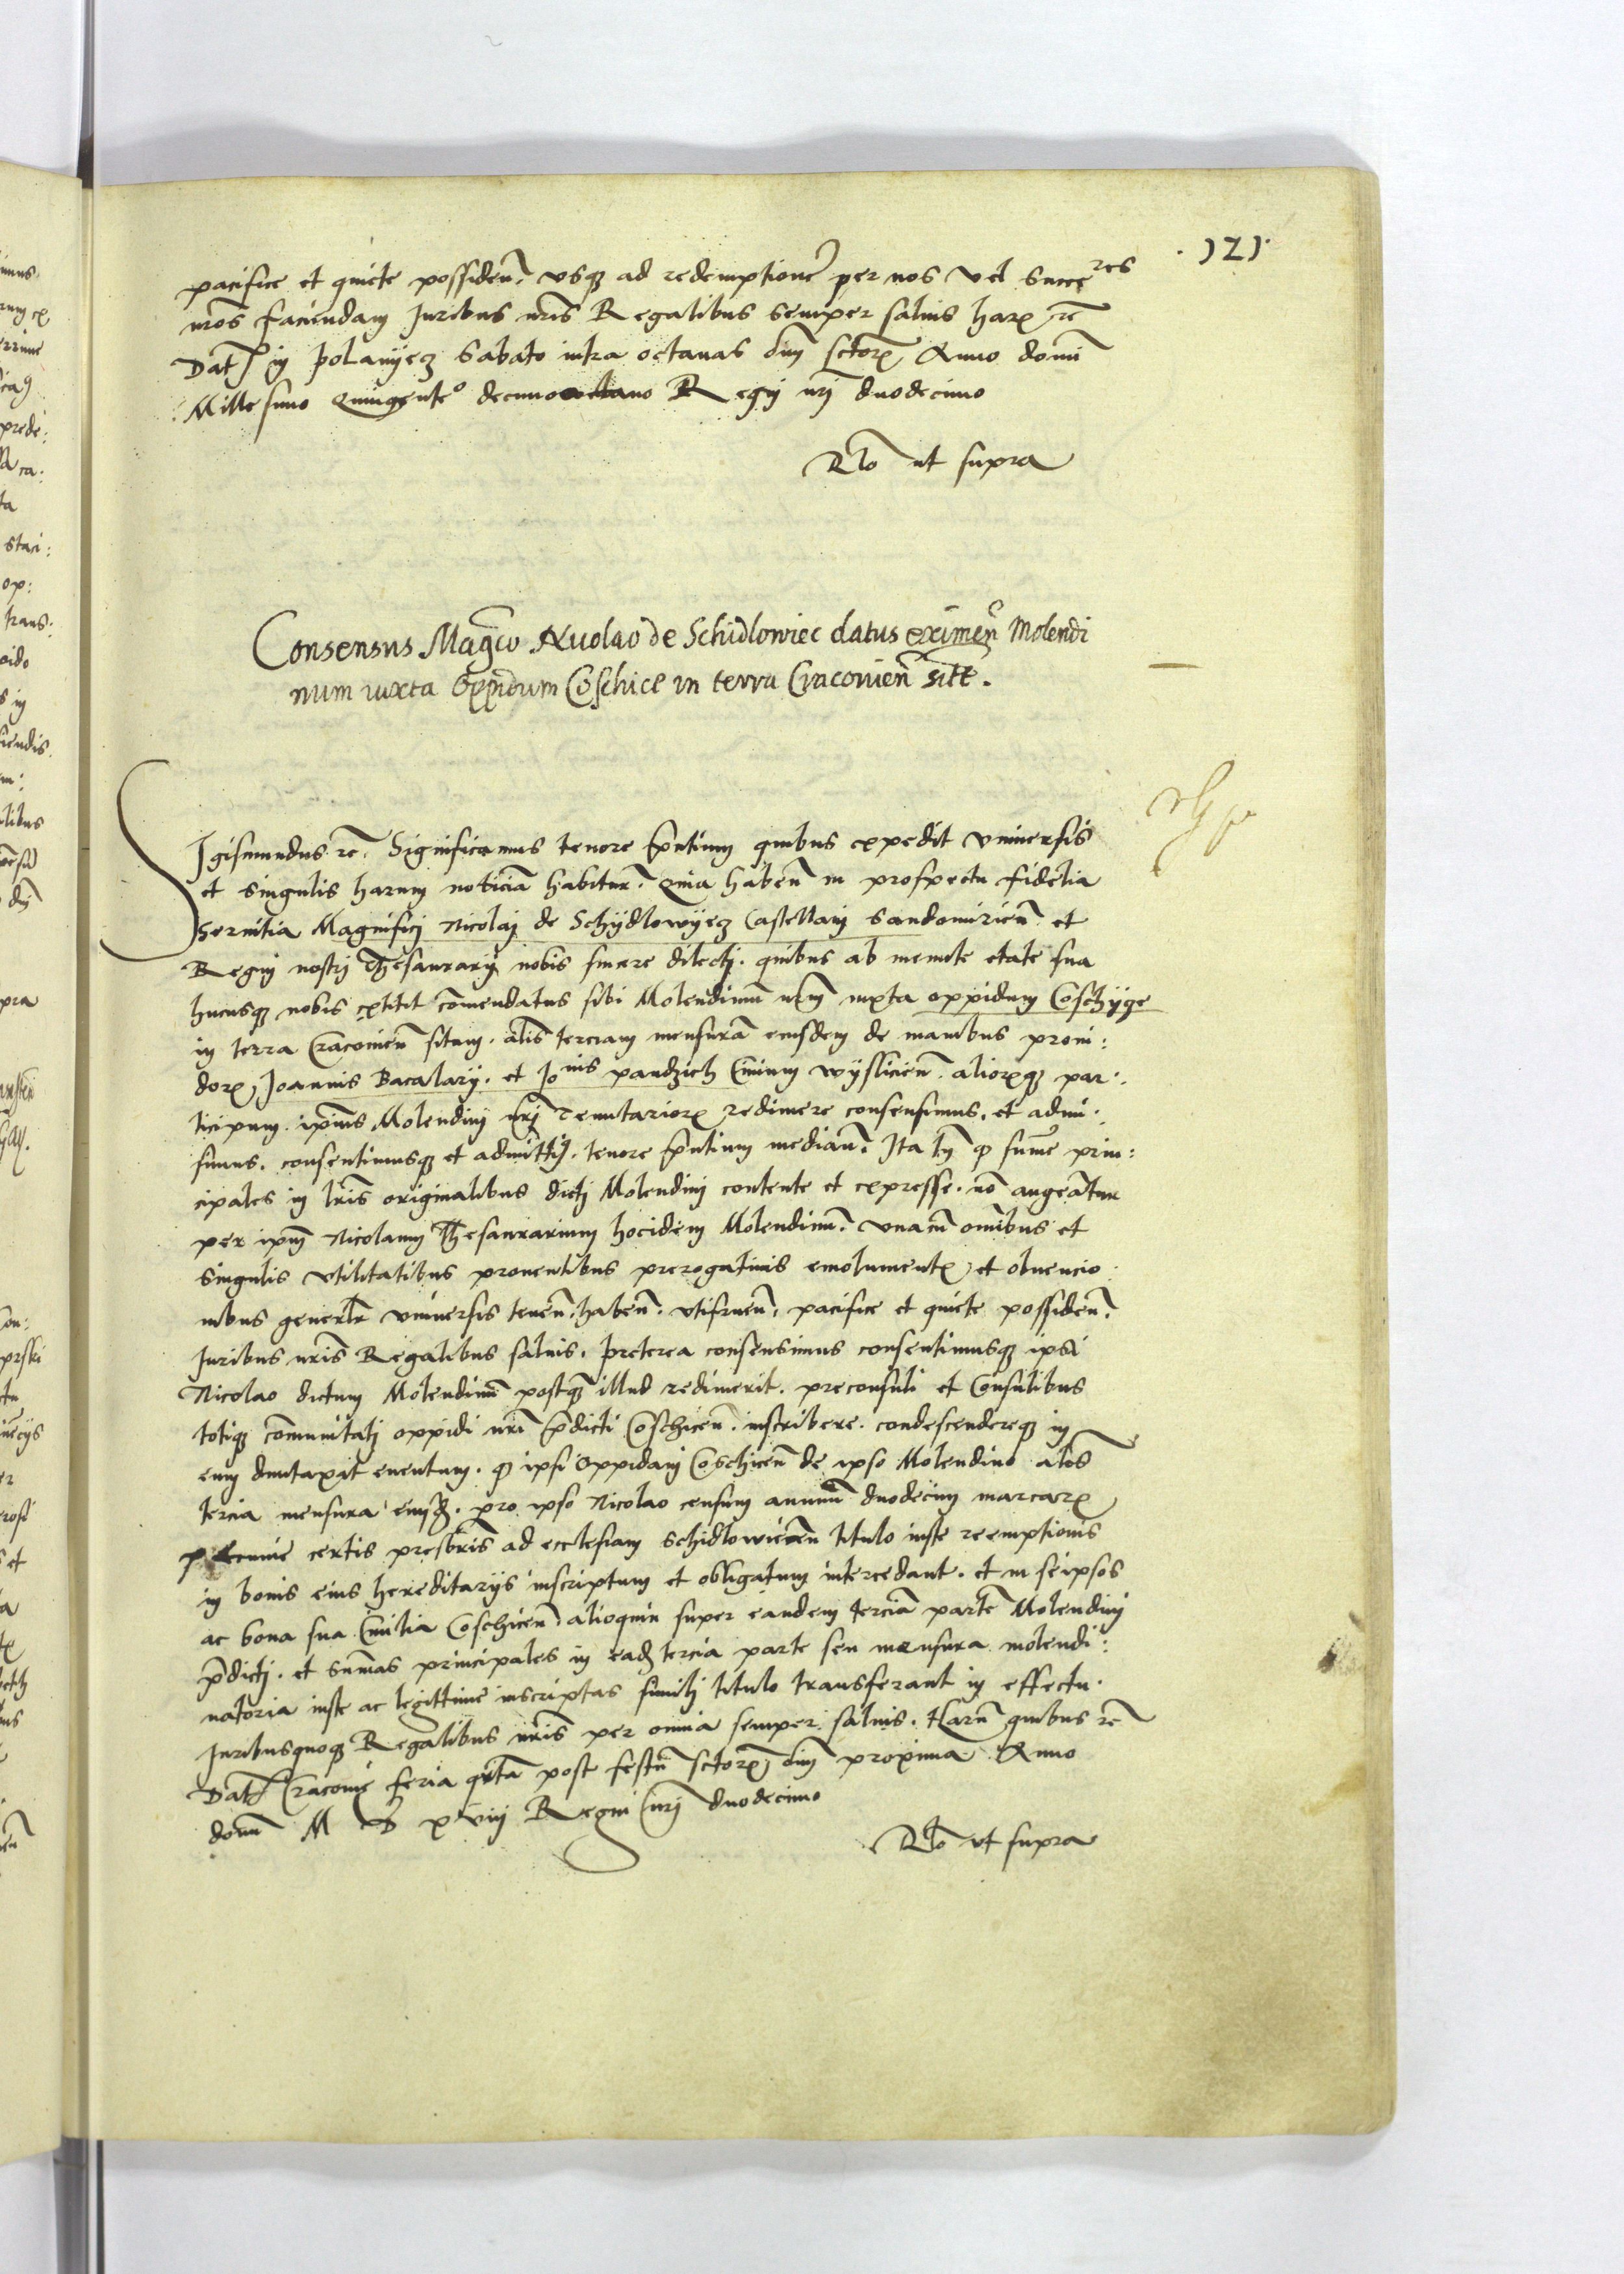 .121.
pacifice et quiete possiden̄. vsqʒ ad redemptionē per nos vel succeres
nr̄os faciendam Iuribus nr̄is Regalibus semper saluis harꝝ rc̄
Datʒ in polanijecz Sabato infra octauas om̄ sctorꝝ Anno domī
Millesimo Quingenteo decimooctauo Regnj nrj duodecimo
Rlō ut supra
Consensus Magco Nicolao de Schidlowiec datus eximēn Molendi
num iuxta Oppidum Coschice in terra Cracouien̄ sitē.
Sigismundus rc̄. Significamus tenore pn̄tium quibus expedit vniuersis
et singulis harum noticiā habiturꝭ. Quia haben̄ in prospectu fidelia
Seruitia Magnificj Nicolaj de Schijdlowijecz Castellanj Sandomirien̄ et
Regnj nostrj Thesaurarij nobis sincere dilectj. quibus ab ineunte etate sua
hucusqʒ nobis extitit cōmendatus sibi Molendinū nr̄m iuxta oppidum Coschijcze
in terra Cracouien̄ situm. alīs terciam mensurā eiusdem de manibus proui:
dorꝝ Joannis Bacalarij. et Jonis pandzich Ciuium wijslicien̄. aliorꝝqʒ par:
ticipum. ipīus Molendinj nr̄j Tenutariorꝝ redimere consensimus. et admi:
simus. consentimusqʒ et admittiꝫ. tenore pn̄tium median̄. Ita tn̄ qʒ sum̄e prin:
cipales in lr̄is originalibus dictj Molendinj contente et expresse. nō augeātur
per ipm̄ Nicolaum Thesaurarium hocidem Molendinū. vnacū om̄ibus et
singulis vtilitatibus prouentibus prerogatiuis emolumentꝭ et obuencio:
nibus generlr̄ vniuersis tenen̄. haben̄. vtifruen̄. pacifice et quiete possiden̄.
Iuribus nr̄is Regalibus saluis. preterea consensimus consentimusqʒ ipsi
Nicolao dictum Molendinū postqʒ illud redimerit. preconsuli et Consulibus
totiqʒ cōmunitatj oppidi nr̄i pr̄dicti Coschicen̄. inscribere. condescendereqʒ in
eum dumtaxat euentum. qʒ ipsi Oppidanj Coschicen̄ de ipso Molendino aliōs
tercia mensura eiusꝫ. pro ipso Nicolao censum annuū duodecim marcarꝝ
pecunie certis presbr̄is ad ecclesiam Schidlowicen̄ titulo iuste reemptionis
in bonis eius hereditarijs inscriptum et obligatum intercedant. et in seipsos
ac bona sua Ciuilia Coschicen̄ alioquin super eandem terciā partē Molendinj
pr̄dictj. et sum̄as principales in eadʒ tercia parte seu mensura molendi:
natoria iuste ac legittime inscriptas similj titulo transferant in effectu.
Iuribusquoqʒ Regalibus nr̄is per omnia semper saluis. Harū quibus rc̄
Datʒ Cracouie feria qrtā post festū sctorꝝ om̄ proxima Anno
domī M D xviij Regni nrj duodecimo
Rlō vt supra